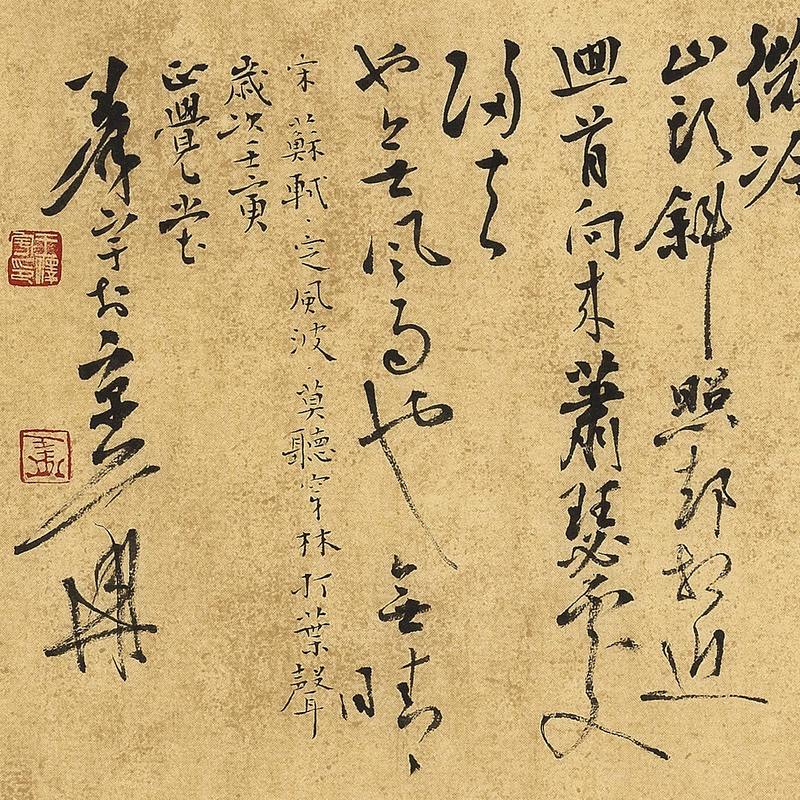 微冷
山頭斜照却相迎
迴首向來蕭瑟處
歸去
也無風雨也無晴
宋 蘇軾·定風波·莫聽穿林打葉聲
歲次壬寅
正覺堂
於京